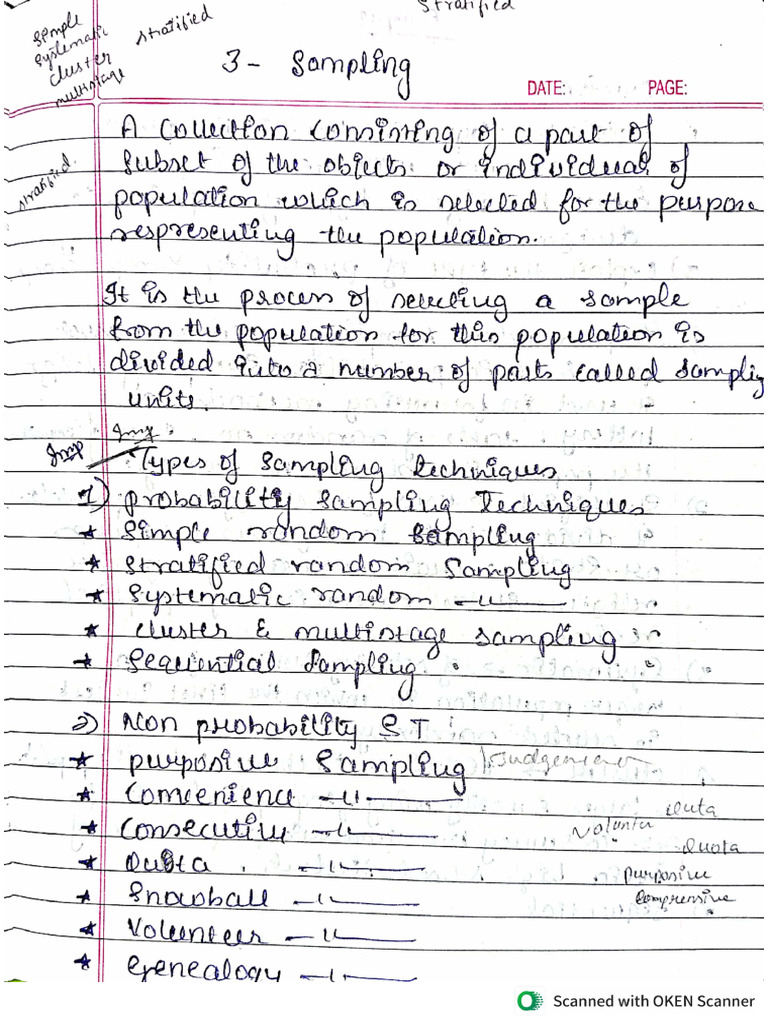 stratified
simple
systematic
cluster
multistage
stratified
3 - Sampling
DATE: PAGE:
A Collection Consisting of a part of
subset of the objects or individual of
stratified
population which is selected for the purpose
respresenting the population.
It is the process of selecting a sample
from the population for this population is
divided into a number of parts called sampling
units.
Imp
Imp
Types of Sampling techniques
1) probability sampling Techniques
* Simple random Sampling
* Stratified random Sampling
* Systematic random —"—
* Cluster & multistage sampling
* Sequential Sampling.
2) Non probability S T
* purposive Sampling
* Convenience —"—
* Consecutive —"—
* Quota —"— quota
* Snowball —"— purposive
* Volunteer —"—
* Genealogy —"—
Scanned with OKEN Scanner